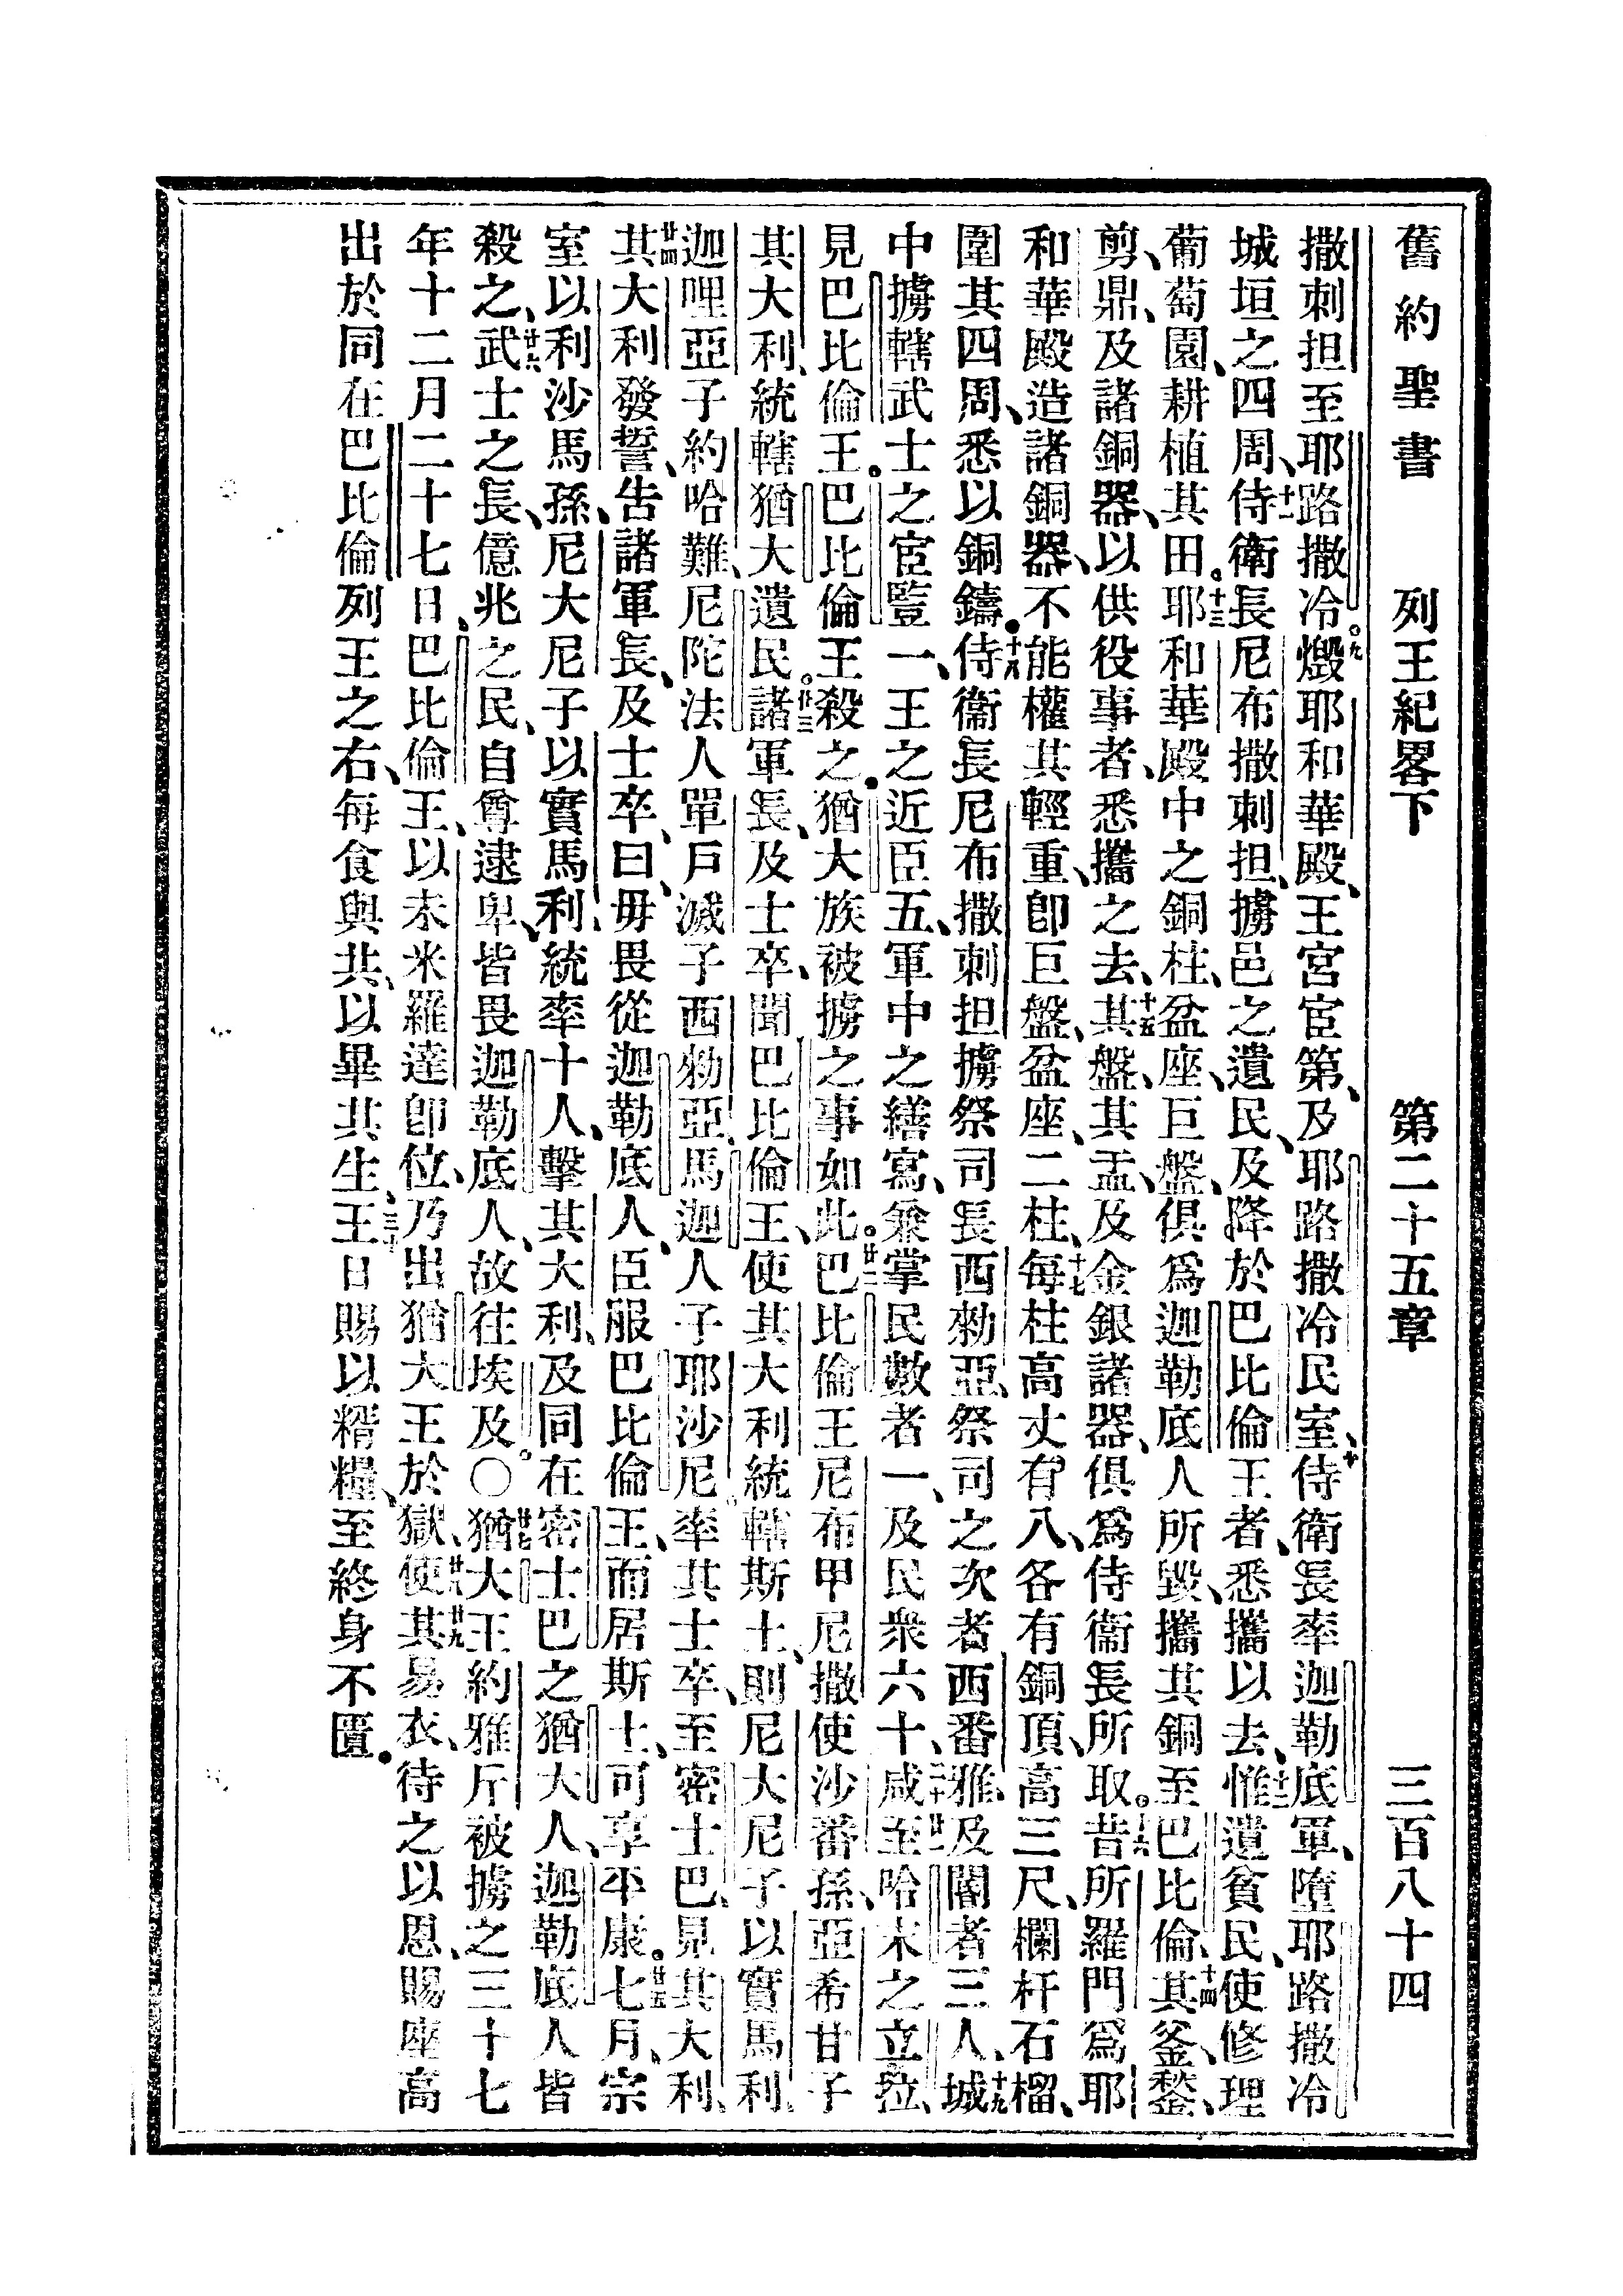 舊約聖書 列王紀畧下 第二十五章 三百八十四
撒刺担至耶路撒冷。九燬耶和華殿、王宮宦第、及耶路撒冷民室、十侍衛長率迦勒底軍、墮耶路撒冷
城垣之四周、十一侍衛長尼布撒刺担、擄邑之遺民、及降於巴比倫王者、悉攜以去、十二惟遺貧民、使修理
葡萄園、耕植其田。十三耶和華殿中之銅柱、盆座、巨盤、俱爲迦勒底人所毀、攜其銅至巴比倫、十四其釜、鍫、
剪、鼎、及諸銅器、以供役事者、悉攜之去、十五其盤、其盂、及金銀諸器、俱爲侍衞長所取。十六昔所羅門爲耶
和華殿造諸銅器、不能權其輕重、卽巨盤、盆座、二柱、十七每柱高丈有八、各有銅頂、高三尺、欄杆石榴、
圍其四周、悉以銅鑄。十八侍衞長尼布撒刺担擄祭司長西勑亞、祭司之次者西番雅、及閽者三人、十九城
中擄轄武士之宦豎一、王之近臣五、軍中之繕寫、兼掌民數者一、及民衆六十、二十咸至哈末之立拉、廿一
見巴比倫王。巴比倫王殺之。猶大族被擄之事如此。廿二巴比倫王尼布甲尼撒使沙番孫、亞希甘子
其大利、統轄猶大遺民。廿三諸軍長、及士卒、聞巴比倫王、使其大利統轄斯土、則尼大尼子以實馬利、
迦哩亞子約哈難、尼陀法人單戶滅子西勑亞、馬迦人子耶沙尼率其士卒、至密士巴、見其大利、
廿四其大利發誓、告諸軍長、及士卒、曰、毋畏從迦勒底人、臣服巴比倫王、而居斯土、可享平康。廿五七月、宗
室以利沙馬孫、尼大尼子以實馬利、統率十人、擊其大利、及同在密士巴之猶大人、迦勒底人皆
殺之、廿六武士之長、億兆之民、自尊逮卑、皆畏迦勒底人、故往埃及。〇廿七猶大王約雅斤被擄之三十七
年十二月二十七日、巴比倫王、以未米羅達卽位、乃出猶大王於獄、廿八使其廿九易衣、待之以恩、賜座高
出於同在巴比倫列王之右、每食與共、以畢其生、三十王日賜以糈糧、至終身不匱。